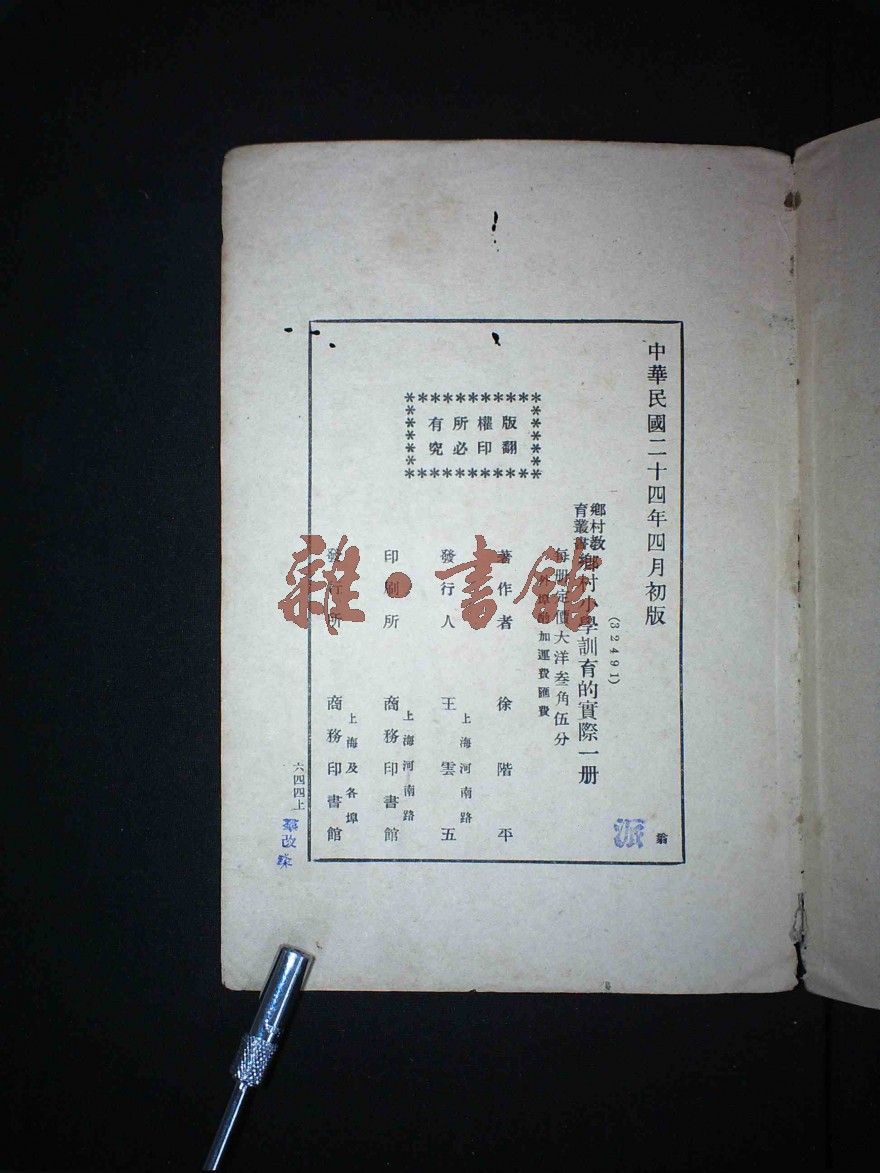 中華民國二十四年四月初版
(32491)
鄉村教
育叢書
鄉村小學訓育的實際一册
每册定價大洋叁角伍分
外埠酌加運費匯費
版權所有
翻印必究
著作者 徐階平
上海河南路
發行人 王雲五
上海河南路
印刷所 商務印書館
上海及各埠
發行所 商務印書館
六四四上
派
雜·書館